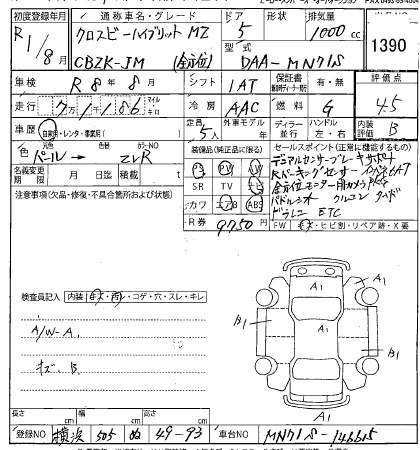 初度登録年月 通称車名・グレード ドア 形状 排気量
R1/8月 クロスビー ハイブリット MZ 5 1000cc
CBZK-JM (全方位) 型式 DAA-MN71S 1390
車検 R 8年 8月 シフト 1AT 保証書 有・無 評価点
走行 7万1186 マイル キロ 冷房 AAC 燃料 G 4.5
車歴 自家用・レンタ・事業用( ) 定員 5人 外車モデル年 ディーラー 並行 ハンドル 左・右 内装 B
色 元色 パール → 色替 カラーNO ZVR
装備品(純正品に限る) セールスポイント(正常に機能するもの)
名義変更期限 月 日迄 積載 t
PS PW
SR TV
カワ エアB ABS
R券 9750
デュアルセンサーブレーキサポート
Rパーキングセンサー 6AT
パドルシフト クルコン
ドラレコ ETC
注意事項(欠品・修復・不具合箇所および状態)
FW キズ・ヒビ割・リペア跡・X要
検査員記入 内装 キズ・汚レ・コゲ・穴・スレ・キレ
A/W-A.
キズ. B.
A1
A1
B1
A1
B1
A1
長さ cm 幅 cm 高さ cm
登録NO 横浜 505 ぬ 49-93 車台NO MN71S-146615